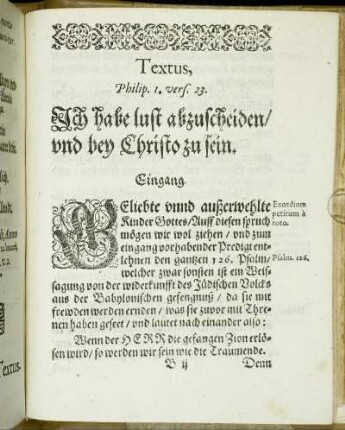 Textus,
Philip. 1. vers. 23.
Ich habe lust abzuscheiden/
vnd bey Christo zu sein.
Eingang
GEliebte vnnd außerwehlte
Kinder Gottes/ Auff diesen spruch
mögen wir wol ziehen/ vnd zum
eingang vorhabender Predigt ent-
lehnen den gantzen 126. Psalm/
welcher zwar sonsten ist ein Weis-
sagung von der widerkunfft des Jüdischen Volcks
aus der Babylonischen gefengnuß/ da sie mit
frewden werden ernden/ was sie zuvor mit Thre-
nen haben geseet/ vnd lautet nach einander also:
Wenn der HERR die gefangen Zion erlö-
sen wird/ so werden wir sein wie die Traumende.
B ij Denn
Exordium
petitum à
Psalm. 126.
Textus.